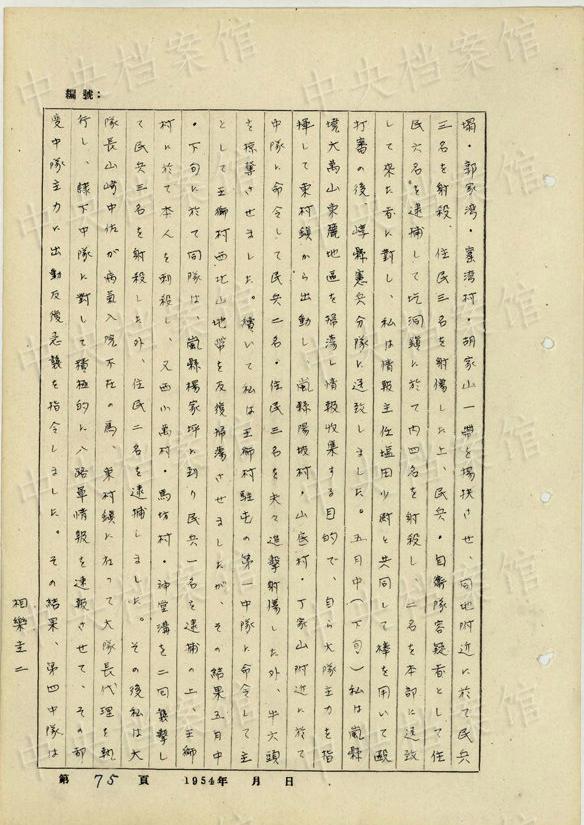 編號:
塌・郭家湾・寨湾村・胡家山一帯を場挟させ、同地附近に於て民兵
三名を射殺、住民三名を射傷した上、民兵・自衛隊容疑者として住
民六名を逮捕して圪洞鎮に於て内四名を射殺し、二名を本部に送致
して来た者に対し、私は情報主任塩田少尉と共同して棒を用いて殴
打審の後、嵐縣憲兵分隊に送致しました。五月中(下旬)私は嵐縣
境大萬山東麓地區を掃蕩し情報收集する目的で、自ら大隊主力を指
揮して東村鎮から出動し、嵐縣陽坡村・山底村・丁家山附近に於て
中隊に命令して民兵二名・住民三名を夫々追撃射傷した外、牛六頭
を掠奪させました。續いて私は王獅村駐屯の第一中隊に命令して主
として王獅村西北山地帯を反復掃蕩させましたが、その結果五月中
・下旬に於て同隊は、嵐縣楊家坪に到り民兵一名を逮捕の上、王獅
村に於て本人を刺殺し、又西小萬村・馬坊村・神堂溝を二回襲撃し
て民兵三名を射殺した外、住民二名を逮捕しました。その後私は大
隊長山崎中佐が病氣入院不在の為、東村鎮に在って大隊長代理を執
行し、隷下中隊に対して積極的に八路軍情報を速報させて、その都
度中隊主力に出動反復急襲を指令しました。その結果、第四中隊は
相樂圭二
第 75 頁 1954年 月 日
中央档案馆